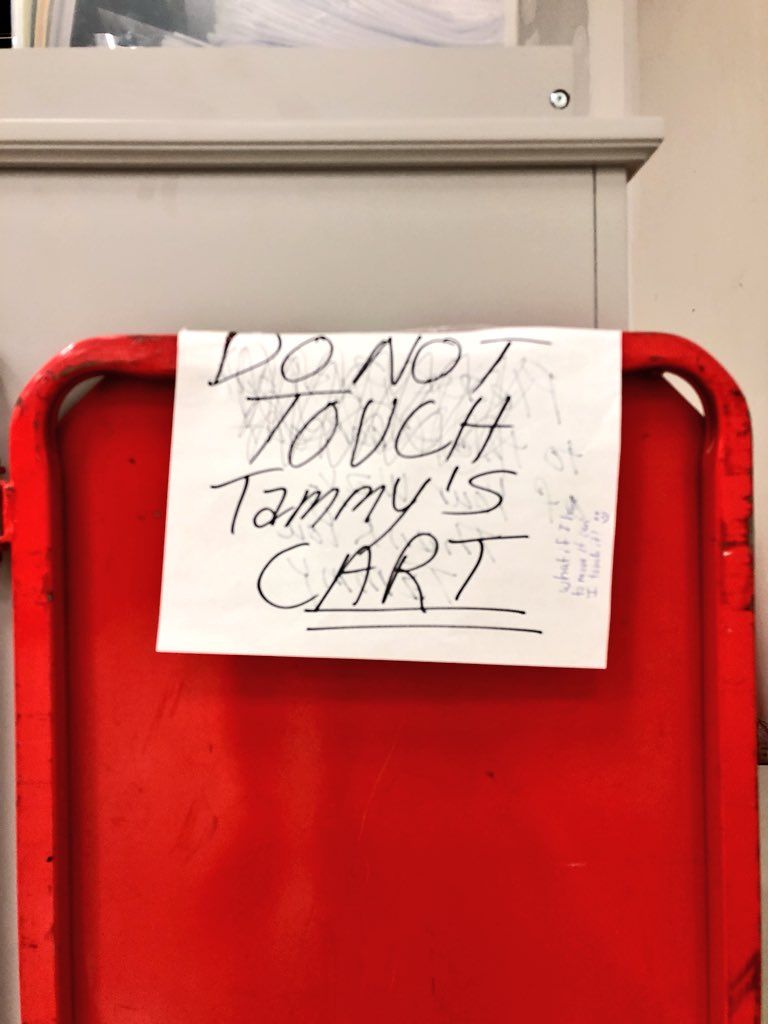 DO NOT
TOUCH
Tammy's
CART
What if I have
to move it can
I touch it?